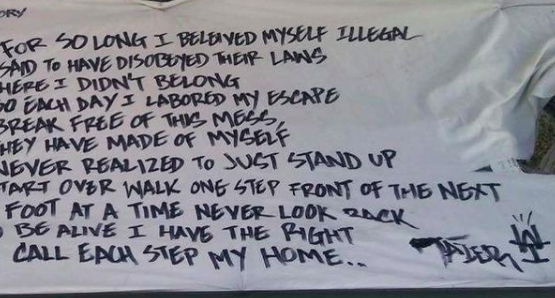 ORY
FOR SO LONG I BELEIVED MYSELF ILLEGAL
SAID TO HAVE DISOBEYED THEIR LAWS
HERE I DIDN'T BELONG
SO EACH DAY I LABORED MY ESCAPE
BREAK FREE OF THIS MESS,
HEY HAVE MADE OF MYSELF
NEVER REALIZED TO JUST STAND UP
TART OVER WALK ONE STEP FRONT OF THE NEXT
FOOT AT A TIME NEVER LOOK BACK
BE ALIVE I HAVE THE RIGHT
CALL EACH STEP MY HOME..